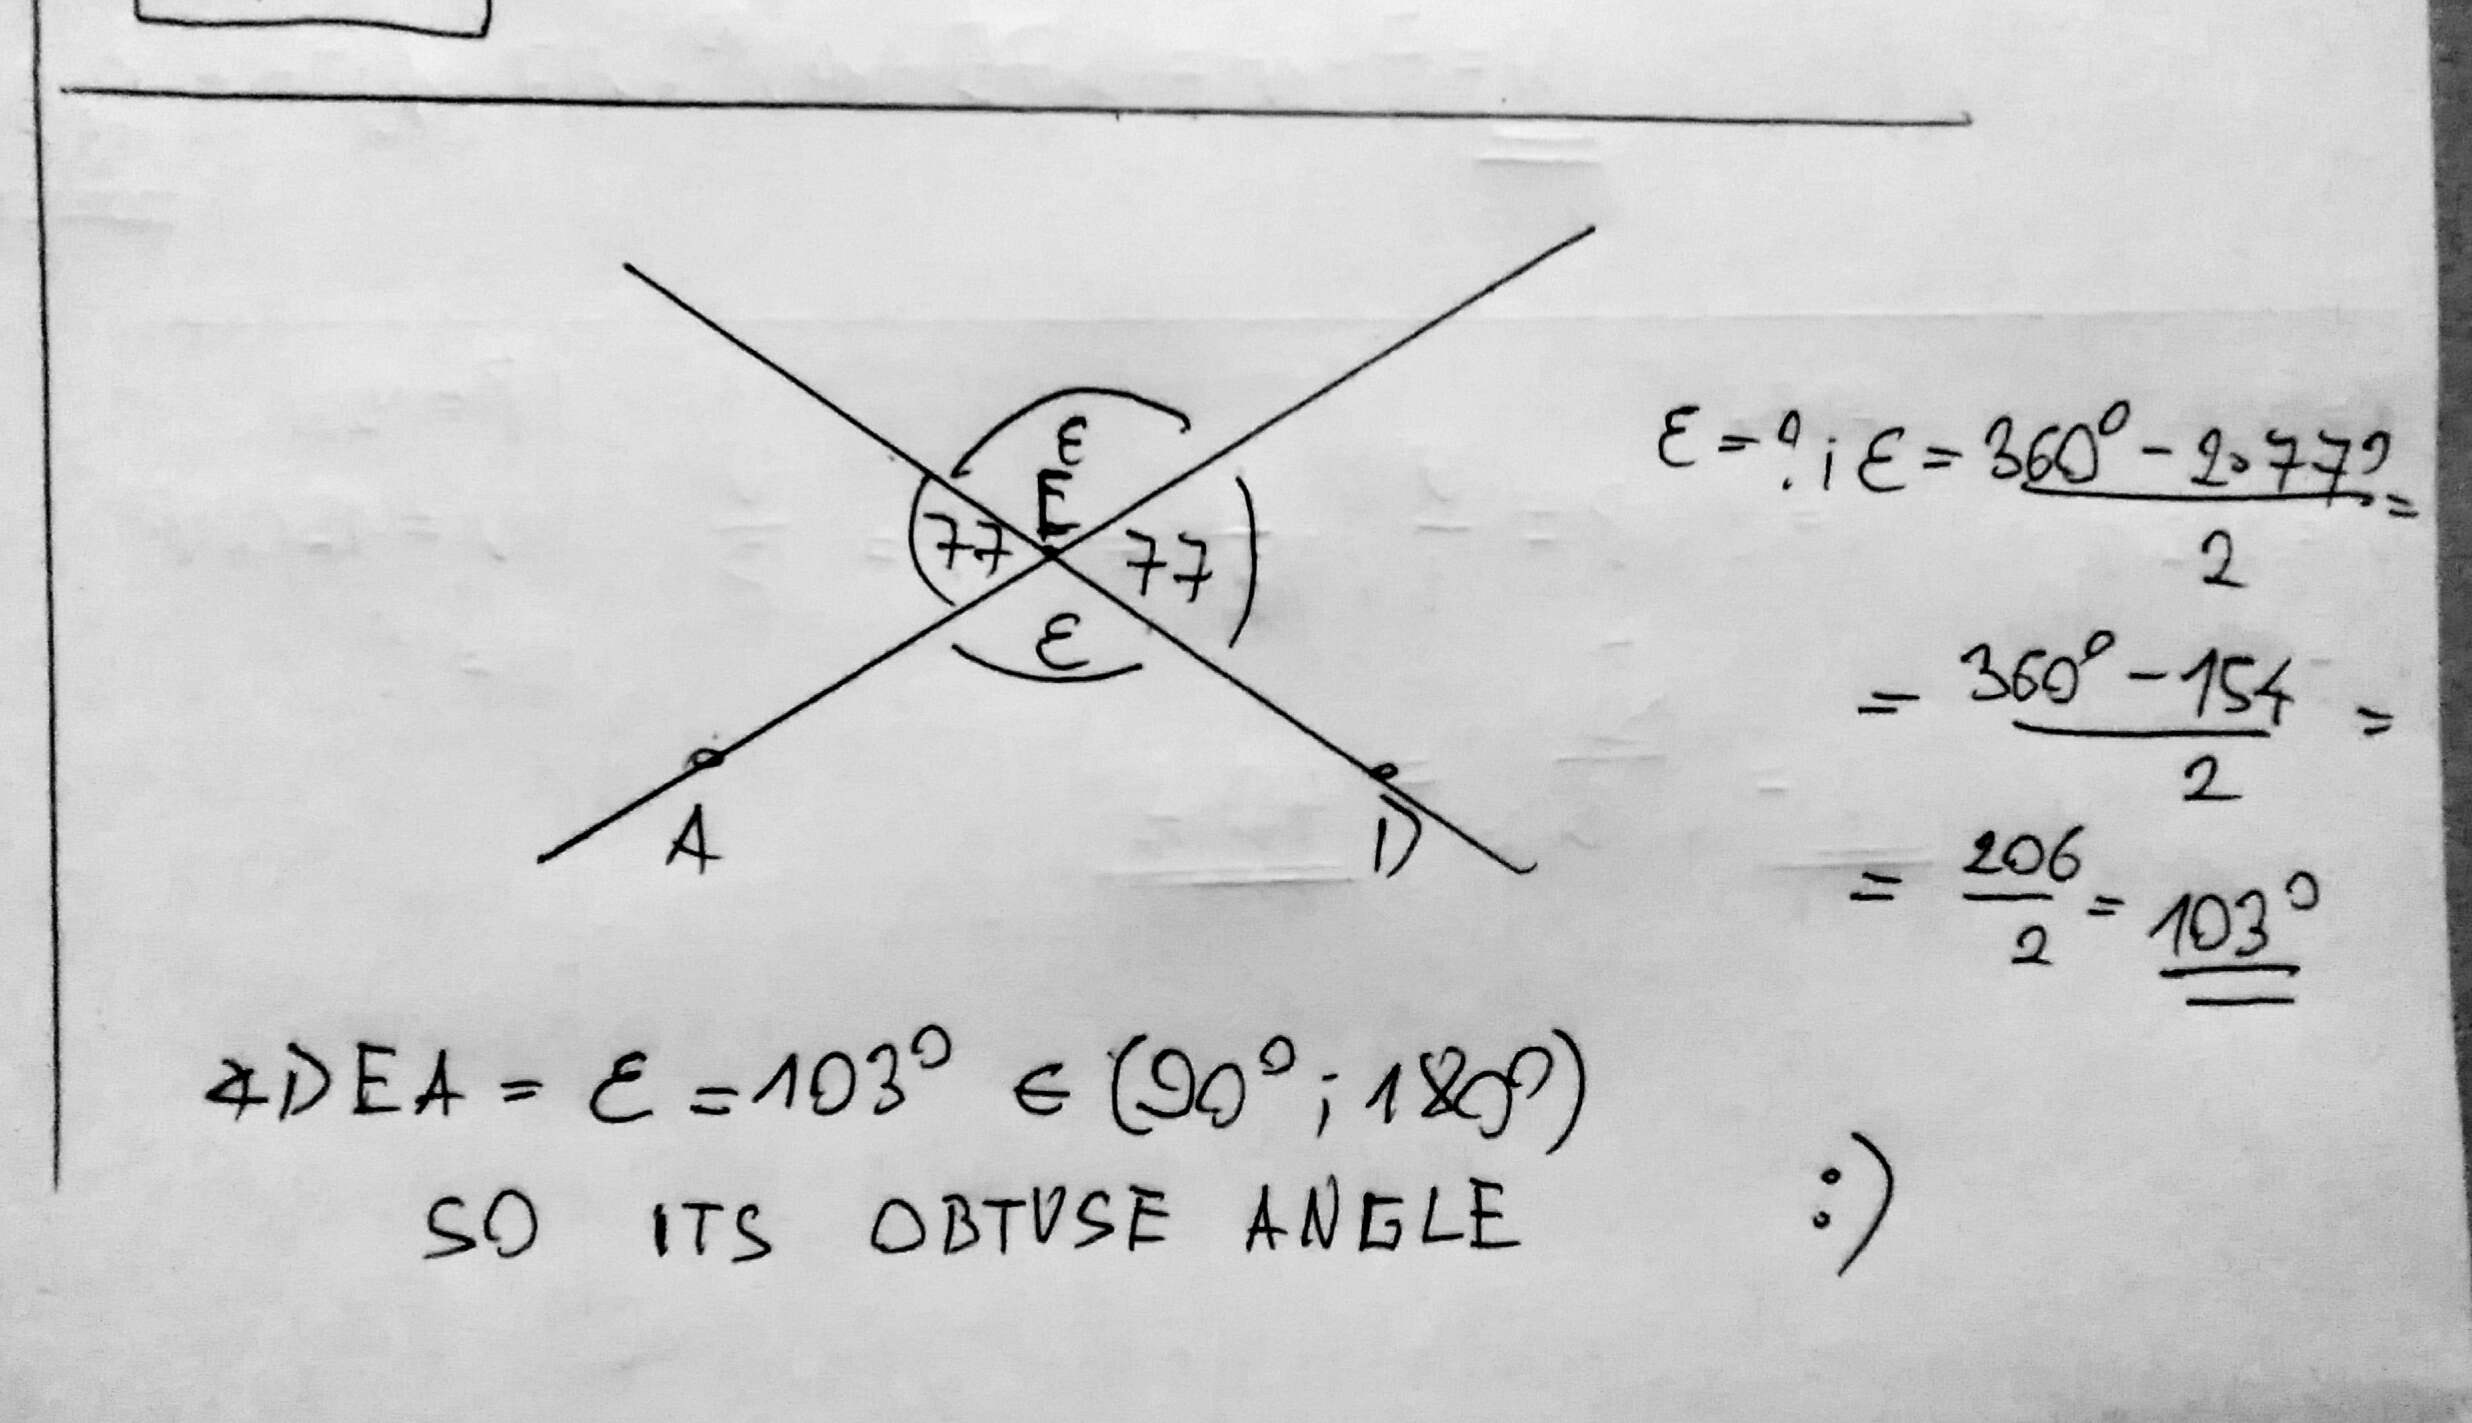 ε
E
77 77
ε
A D
ε = ? ; ε = 360° - 2·77° =
2
= 360° - 154 =
2
= 206 = 103°
2
∢DEA = ε = 103° ∈ (90° ; 180°)
SO ITS OBTUSE ANGLE :)